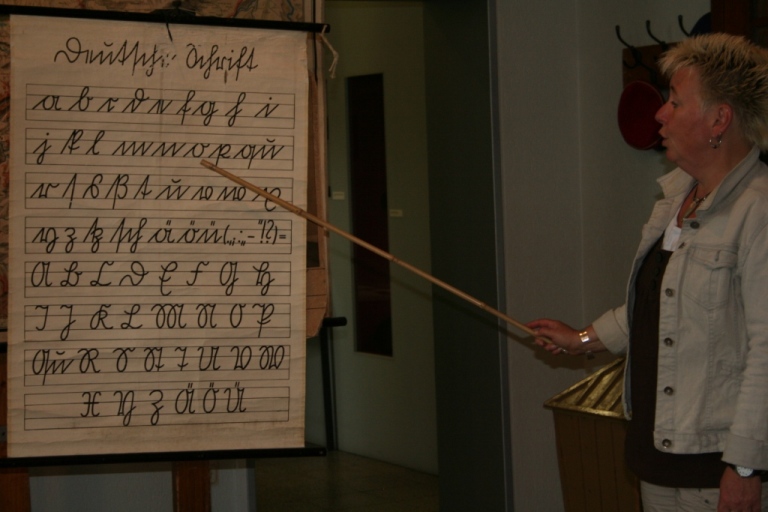 Deutsche Schrift
a b c d e f g h i
j k l m n o p qu
r s ß t u v w x
y z tz sch ä ö ü (.,;:-"!?)=
A B C D E F G H
I J K L M N O P
Qu R S St T U V W
X Y Z Ä Ö Ü